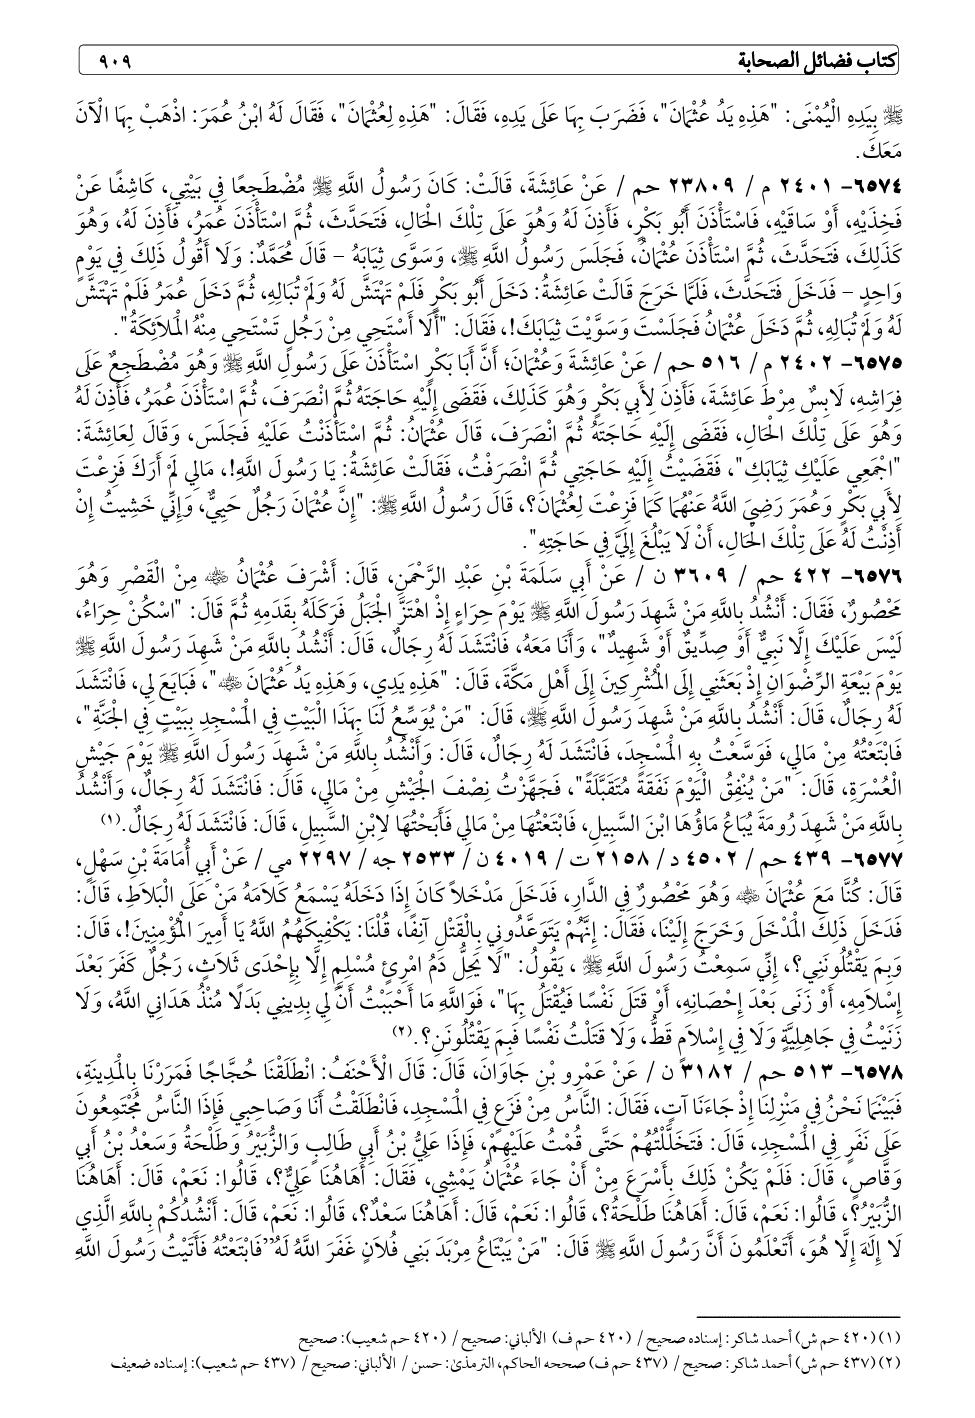 كتاب فضائل الصحابة ٩٠٩
ﷺ بِيَدِهِ الْيُمْنَى: "هَذِهِ يَدُ عُثْمَانَ"، فَضَرَبَ بِهَا عَلَى يَدِهِ، فَقَالَ: "هَذِهِ لِعُثْمَانَ"، فَقَالَ لَهُ ابْنُ عُمَرَ: اذْهَبْ بِهَا الْآنَ
مَعَكَ.
٦٥٧٤- ٢٤٠١ م / ٢٣٨٠٩ حم / عَنْ عَائِشَةَ، قَالَتْ: كَانَ رَسُولُ اللَّهِ ﷺ مُضْطَجِعًا فِي بَيْتِي، كَاشِفًا عَنْ
فَخِذَيْهِ، أَوْ سَاقَيْهِ، فَاسْتَأْذَنَ أَبُو بَكْرٍ، فَأَذِنَ لَهُ وَهُوَ عَلَى تِلْكَ الْحَالِ، فَتَحَدَّثَ، ثُمَّ اسْتَأْذَنَ عُمَرُ، فَأَذِنَ لَهُ، وَهُوَ
كَذَلِكَ، فَتَحَدَّثَ، ثُمَّ اسْتَأْذَنَ عُثْمَانُ، فَجَلَسَ رَسُولُ اللَّهِ ﷺ، وَسَوَّى ثِيَابَهُ – قَالَ مُحَمَّدٌ: وَلَا أَقُولُ ذَلِكَ فِي يَوْمٍ
وَاحِدٍ – فَدَخَلَ فَتَحَدَّثَ، فَلَمَّا خَرَجَ قَالَتْ عَائِشَةُ: دَخَلَ أَبُو بَكْرٍ فَلَمْ تَهْتَشَّ لَهُ وَلَمْ تُبَالِهِ، ثُمَّ دَخَلَ عُمَرُ فَلَمْ تَهْتَشَّ
لَهُ وَلَمْ تُبَالِهِ، ثُمَّ دَخَلَ عُثْمَانُ فَجَلَسْتَ وَسَوَّيْتَ ثِيَابَكَ!، فَقَالَ: "أَلَا أَسْتَحِي مِنْ رَجُلٍ تَسْتَحِي مِنْهُ الْمَلَائِكَةُ".
٦٥٧٥- ٢٤٠٢ م / ٥١٦ حم / عَنْ عَائِشَةَ وَعُثْمَانَ؛ أَنَّ أَبَا بَكْرٍ اسْتَأْذَنَ عَلَى رَسُولِ اللَّهِ ﷺ وَهُوَ مُضْطَجِعٌ عَلَى
فِرَاشِهِ، لَابِسٌ مِرْطَ عَائِشَةَ، فَأَذِنَ لِأَبِي بَكْرٍ وَهُوَ كَذَلِكَ، فَقَضَى إِلَيْهِ حَاجَتَهُ ثُمَّ انْصَرَفَ، ثُمَّ اسْتَأْذَنَ عُمَرُ، فَأَذِنَ لَهُ
وَهُوَ عَلَى تِلْكَ الْحَالِ، فَقَضَى إِلَيْهِ حَاجَتَهُ ثُمَّ انْصَرَفَ، قَالَ عُثْمَانُ: ثُمَّ اسْتَأْذَنْتُ عَلَيْهِ فَجَلَسَ، وَقَالَ لِعَائِشَةَ:
"اجْمَعِي عَلَيْكِ ثِيَابَكِ"، فَقَضَيْتُ إِلَيْهِ حَاجَتِي ثُمَّ انْصَرَفْتُ، فَقَالَتْ عَائِشَةُ: يَا رَسُولَ اللَّهِ!، مَالِي لَمْ أَرَكَ فَزِعْتَ
لِأَبِي بَكْرٍ وَعُمَرَ رَضِيَ اللَّهُ عَنْهُمَا كَمَا فَزِعْتَ لِعُثْمَانَ؟، قَالَ رَسُولُ اللَّهِ ﷺ: "إِنَّ عُثْمَانَ رَجُلٌ حَيِيٌّ، وَإِنِّي خَشِيتُ إِنْ
أَذِنْتُ لَهُ عَلَى تِلْكَ الْحَالِ، أَنْ لَا يَبْلُغَ إِلَيَّ فِي حَاجَتِهِ".
٦٥٧٦- ٤٢٢ حم / ٣٦٠٩ ن / عَنْ أَبِي سَلَمَةَ بْنِ عَبْدِ الرَّحْمَنِ، قَالَ: أَشْرَفَ عُثْمَانُ ﷺ مِنْ الْقَصْرِ وَهُوَ
مَحْصُورٌ، فَقَالَ: أَنْشُدُ بِاللَّهِ مَنْ شَهِدَ رَسُولَ اللَّهِ ﷺ يَوْمَ حِرَاءٍ إِذْ اهْتَزَّ الْجَبَلُ فَرَكَلَهُ بِقَدَمِهِ ثُمَّ قَالَ: "اسْكُنْ حِرَاءُ،
لَيْسَ عَلَيْكَ إِلَّا نَبِيٌّ أَوْ صِدِّيقٌ أَوْ شَهِيدٌ"، وَأَنَا مَعَهُ، فَانْتَشَدَ لَهُ رِجَالٌ، قَالَ: أَنْشُدُ بِاللَّهِ مَنْ شَهِدَ رَسُولَ اللَّهِ ﷺ
يَوْمَ بَيْعَةِ الرِّضْوَانِ إِذْ بَعَثَنِي إِلَى الْمُشْرِكِينَ إِلَى أَهْلِ مَكَّةَ، قَالَ: "هَذِهِ يَدِي، وَهَذِهِ يَدُ عُثْمَانَ ﷺ"، فَبَايَعَ لِي، فَانْتَشَدَ
لَهُ رِجَالٌ، قَالَ: أَنْشُدُ بِاللَّهِ مَنْ شَهِدَ رَسُولَ اللَّهِ ﷺ، قَالَ: "مَنْ يُوَسِّعُ لَنَا بِهَذَا الْبَيْتِ فِي الْمَسْجِدِ بِبَيْتٍ فِي الْجَنَّةِ"،
فَابْتَعْتُهُ مِنْ مَالِي، فَوَسَّعْتُ بِهِ الْمَسْجِدَ، فَانْتَشَدَ لَهُ رِجَالٌ، قَالَ: وَأَنْشُدُ بِاللَّهِ مَنْ شَهِدَ رَسُولَ اللَّهِ ﷺ يَوْمَ جَيْشِ
الْعُسْرَةِ، قَالَ: "مَنْ يُنْفِقُ الْيَوْمَ نَفَقَةً مُتَقَبَّلَةً"، فَجَهَّزْتُ نِصْفَ الْجَيْشِ مِنْ مَالِي، قَالَ: فَانْتَشَدَ لَهُ رِجَالٌ، وَأَنْشُدُ
بِاللَّهِ مَنْ شَهِدَ رُومَةَ يُبَاعُ مَاؤُهَا ابْنَ السَّبِيلِ، فَابْتَعْتُهَا مِنْ مَالِي فَأَبَحْتُهَا لِابْنِ السَّبِيلِ، قَالَ: فَانْتَشَدَ لَهُ رِجَالٌ.(١)
٦٥٧٧- ٤٣٩ حم / ٤٥٠٢ د/ ٢١٥٨ ت / ٤٠١٩ ن / ٢٥٣٣ جه / ٢٢٩٧ مي / عَنْ أَبِي أُمَامَةَ بْنِ سَهْلٍ،
قَالَ: كُنَّا مَعَ عُثْمَانَ ﷺ وَهُوَ مَحْصُورٌ فِي الدَّارِ، فَدَخَلَ مَدْخَلاً كَانَ إِذَا دَخَلَهُ يَسْمَعُ كَلَامَهُ مَنْ عَلَى الْبَلَاطِ، قَالَ:
فَدَخَلَ ذَلِكَ الْمَدْخَلَ وَخَرَجَ إِلَيْنَا، فَقَالَ: إِنَّهُمْ يَتَوَعَّدُونِي بِالْقَتْلِ آنِفًا، قُلْنَا: يَكْفِيكَهُمُ اللَّهُ يَا أَمِيرَ الْمُؤْمِنِينَ!، قَالَ:
وَبِمَ يَقْتُلُونَنِي؟، إِنِّي سَمِعْتُ رَسُولَ اللَّهِ ﷺ ، يَقُولُ: "لَا يَحِلُّ دَمُ امْرِئٍ مُسْلِمٍ إِلَّا بِإِحْدَى ثَلَاثٍ، رَجُلٌ كَفَرَ بَعْدَ
إِسْلَامِهِ، أَوْ زَنَى بَعْدَ إِحْصَانِهِ، أَوْ قَتَلَ نَفْسًا فَيُقْتَلُ بِهَا"، فَوَاللَّهِ مَا أَحْبَبْتُ أَنَّ لِي بِدِينِي بَدَلًا مُنْذُ هَدَانِي اللَّهُ، وَلَا
زَنَيْتُ فِي جَاهِلِيَّةٍ وَلَا فِي إِسْلَامٍ قَطُّ، وَلَا قَتَلْتُ نَفْسًا فَبِمَ يَقْتُلُونَنِ؟.(٢)
٦٥٧٨- ٥١٣ حم / ٣١٨٢ ن / عَنْ عَمْرِو بْنِ جَاوَانَ، قَالَ: قَالَ الْأَحْنَفُ: انْطَلَقْنَا حُجَّاجًا فَمَرَرْنَا بِالْمَدِينَةِ،
فَبَيْنَمَا نَحْنُ فِي مَنْزِلِنَا إِذْ جَاءَنَا آتٍ، فَقَالَ: النَّاسُ مِنْ فَزَعٍ فِي الْمَسْجِدِ، فَانْطَلَقْتُ أَنَا وَصَاحِبِي فَإِذَا النَّاسُ مُجْتَمِعُونَ
عَلَى نَفَرٍ فِي الْمَسْجِدِ، قَالَ: فَتَخَلَّلْتُهُمْ حَتَّى قُمْتُ عَلَيْهِمْ، فَإِذَا عَلِيُّ بْنُ أَبِي طَالِبٍ وَالزُّبَيْرُ وَطَلْحَةُ وَسَعْدُ بْنُ أَبِي
وَقَّاصٍ، قَالَ: فَلَمْ يَكُنْ ذَلِكَ بِأَسْرَعَ مِنْ أَنْ جَاءَ عُثْمَانُ يَمْشِي، فَقَالَ: أَهَاهُنَا عَلِيٌّ؟، قَالُوا: نَعَمْ، قَالَ: أَهَاهُنَا
الزُّبَيْرُ؟، قَالُوا: نَعَمْ، قَالَ: أَهَاهُنَا طَلْحَةُ؟، قَالُوا: نَعَمْ، قَالَ: أَهَاهُنَا سَعْدٌ؟، قَالُوا: نَعَمْ، قَالَ: أَنْشُدُكُمْ بِاللَّهِ الَّذِي
لَا إِلَهَ إِلَّا هُوَ، أَتَعْلَمُونَ أَنَّ رَسُولَ اللَّهِ ﷺ قَالَ: "مَنْ يَبْتَاعُ مِرْبَدَ بَنِي فُلَانٍ غَفَرَ اللَّهُ لَهُ" فَابْتَعْتُهُ فَأَتَيْتُ رَسُولَ اللَّهِ
(١) (٤٢٠ حم ش) أحمد شاكر: إسناده صحيح / (٤٢٠ حم ف) الألباني: صحيح / (٤٢٠ حم شعيب): صحيح
(٢) (٤٣٧ حم ش) أحمد شاكر: صحيح / (٤٣٧ حم ف) صححه الحاكم، الترمذي: حسن / الألباني: صحيح / (٤٣٧ حم شعيب): إسناده ضعيف